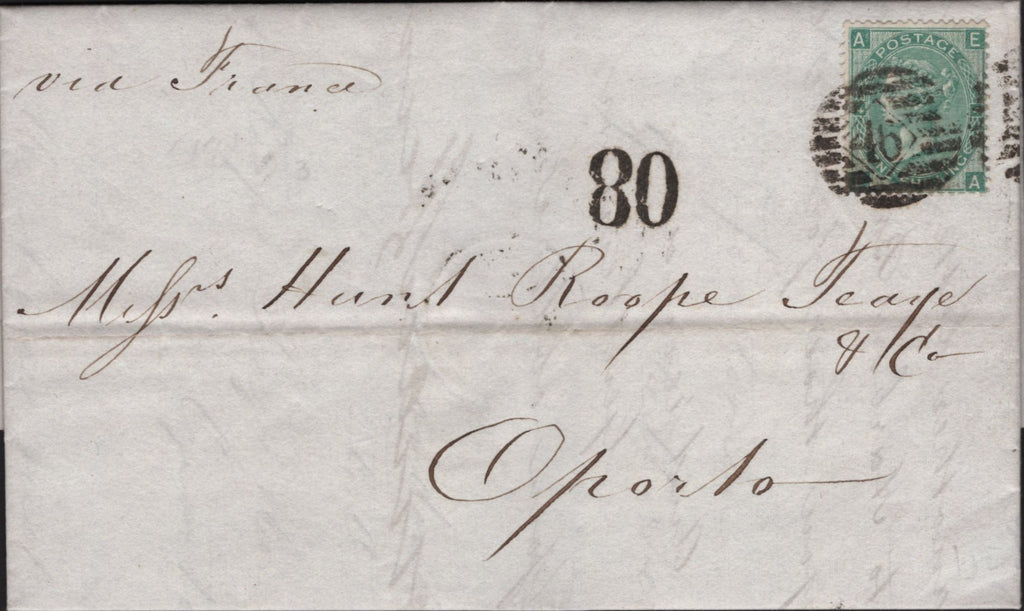 via France
A E
POSTAGE
46
A
80
Messrs. Hunt Roope Teage
& Co
Oporto